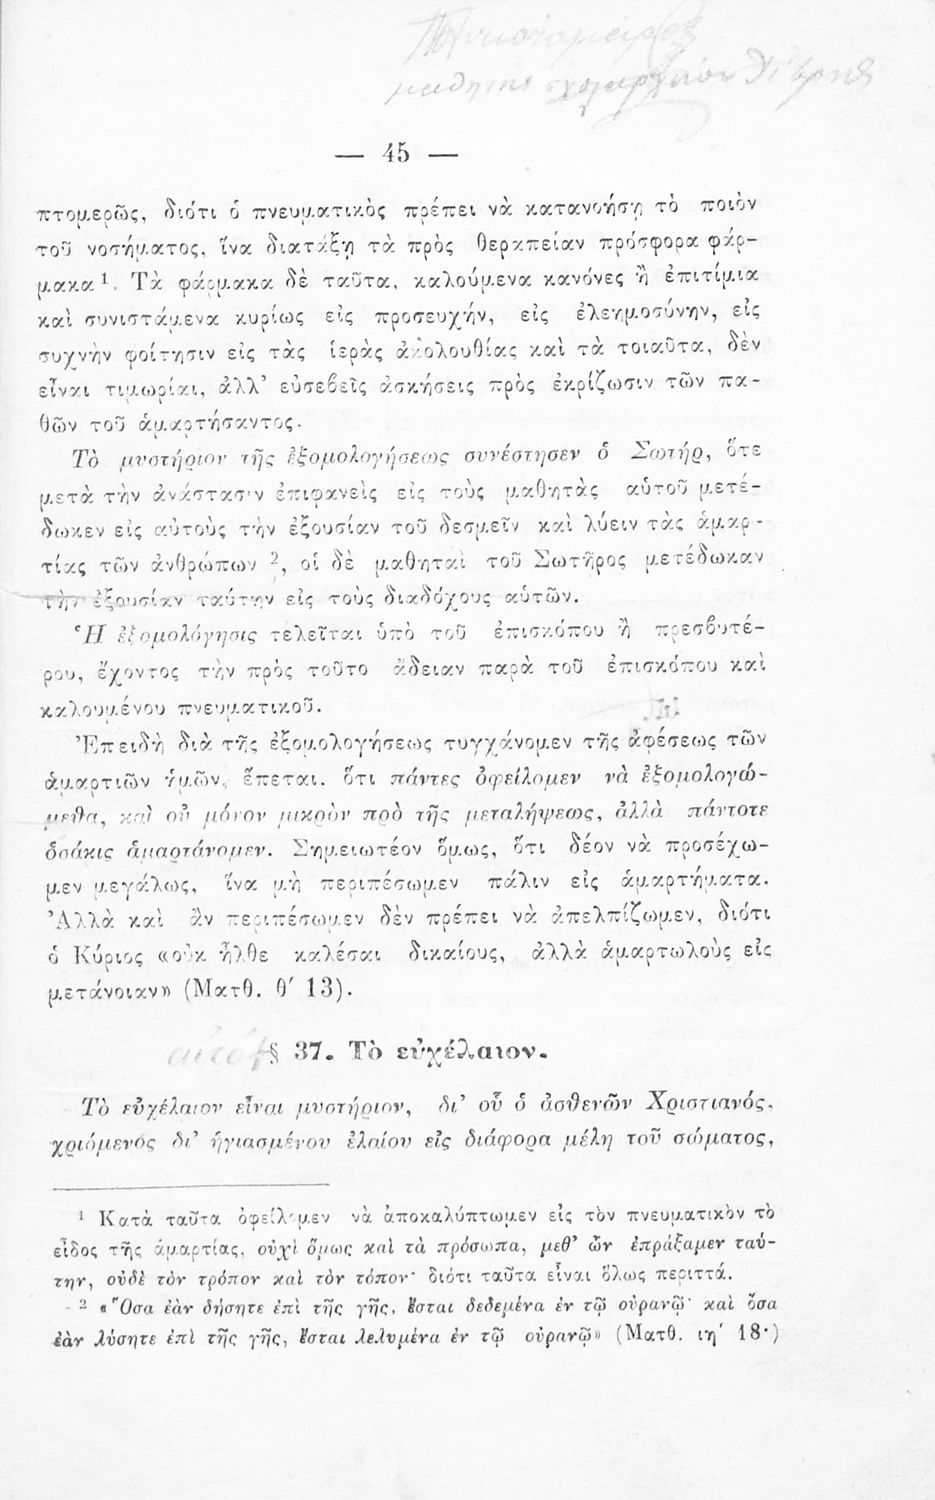 μαθητής σχολαρχείου
— 45 —
πτομερῶς, διότι ὁ πνευματικὸς πρέπει νὰ κατανοήσῃ τὸ ποιὸν
τοῦ νοσήματος, ἵνα διατάξῃ τὰ πρὸς θεραπείαν πρόσφορα φάρ-
μακα¹. Τὰ φάρμακα δὲ ταῦτα, καλούμενα κανόνες ἢ ἐπιτίμια
καὶ συνιστάμενα κυρίως εἰς προσευχήν, εἰς ἐλεημοσύνην, εἰς
συχνὴν φοίτησιν εἰς τὰς ἱερὰς ἀκολουθίας καὶ τὰ τοιαῦτα, δὲν
εἶναι τιμωρίαι, ἀλλ’ εὐσεβεῖς ἀσκήσεις πρὸς ἐκρίζωσιν τῶν πα-
θῶν τοῦ ἁμαρτήσαντος.
Τὸ μυστήριον τῆς ἐξομολογήσεως συνέστησεν ὁ Σωτήρ, ὅτε
μετὰ τὴν ἀνάστασιν ἐπιφανεὶς εἰς τοὺς μαθητὰς αὑτοῦ μετέ-
δωκεν εἰς αὐτοὺς τὴν ἐξουσίαν τοῦ δεσμεῖν καὶ λύειν τὰς ἁμαρ-
τίας τῶν ἀνθρώπων ², οἱ δὲ μαθηταὶ τοῦ Σωτῆρος μετέδωκαν
τὴν ἐξουσίαν ταύτην εἰς τοὺς διαδόχους αὑτῶν.
Ἡ ἐξομολόγησις τελεῖται ὑπὸ τοῦ ἐπισκόπου ἢ πρεσβυτέ-
ρου, ἔχοντος τὴν πρὸς τοῦτο ἄδειαν παρὰ τοῦ ἐπισκόπου καὶ
καλουμένου πνευματικοῦ.
Ἐπειδὴ διὰ τῆς ἐξομολογήσεως τυγχάνομεν τῆς ἀφέσεως τῶν
ἁμαρτιῶν ἡμῶν, ἕπεται. ὅτι πάντες ὀφείλομεν νὰ ἐξομολογώ-
μεθα, καὶ οὐ μόνον μικρὸν πρὸ τῆς μεταλήψεως, ἀλλὰ πάντοτε
ὁσάκις ἁμαρτάνομεν. Σημειωτέον ὅμως, ὅτι δέον νὰ προσέχω-
μεν μεγάλως, ἵνα μὴ περιπέσωμεν πάλιν εἰς ἁμαρτήματα.
Ἀλλὰ καὶ ἂν περιπέσωμεν δὲν πρέπει νὰ ἀπελπίζωμεν, διότι
ὁ Κύριος «οὐκ ἦλθε καλέσαι δικαίους, ἀλλὰ ἁμαρτωλοὺς εἰς
μετάνοιαν» (Ματθ. θ′ 13).
§ 37. Τὸ εὐχέλαιον.
Τὸ εὐχέλαιον εἶναι μυστήριον, δι’ οὗ ὁ ἀσθενῶν Χριστιανός,
χριόμενος δι’ ἡγιασμένου ἐλαίου εἰς διάφορα μέλη τοῦ σώματος,
¹ Κατὰ ταῦτα ὀφείλομεν νὰ ἀποκαλύπτωμεν εἰς τὸν πνευματικὸν τὸ
εἶδος τῆς ἁμαρτίας, οὐχὶ ὅμως καὶ τὰ πρόσωπα, μεθ’ ὧν ἐπράξαμεν ταύ-
την, οὐδὲ τὸν τρόπον καὶ τὸν τόπον· διότι ταῦτα εἶναι ὅλως περιττά.
² «Ὅσα ἐὰν δήσητε ἐπὶ τῆς γῆς, ἔσται δεδεμένα ἐν τῷ οὐρανῷ· καὶ ὅσα
ἐὰν λύσητε ἐπὶ τῆς γῆς, ἔσται λελυμένα ἐν τῷ οὐρανῷ» (Ματθ. ιη′ 18·)